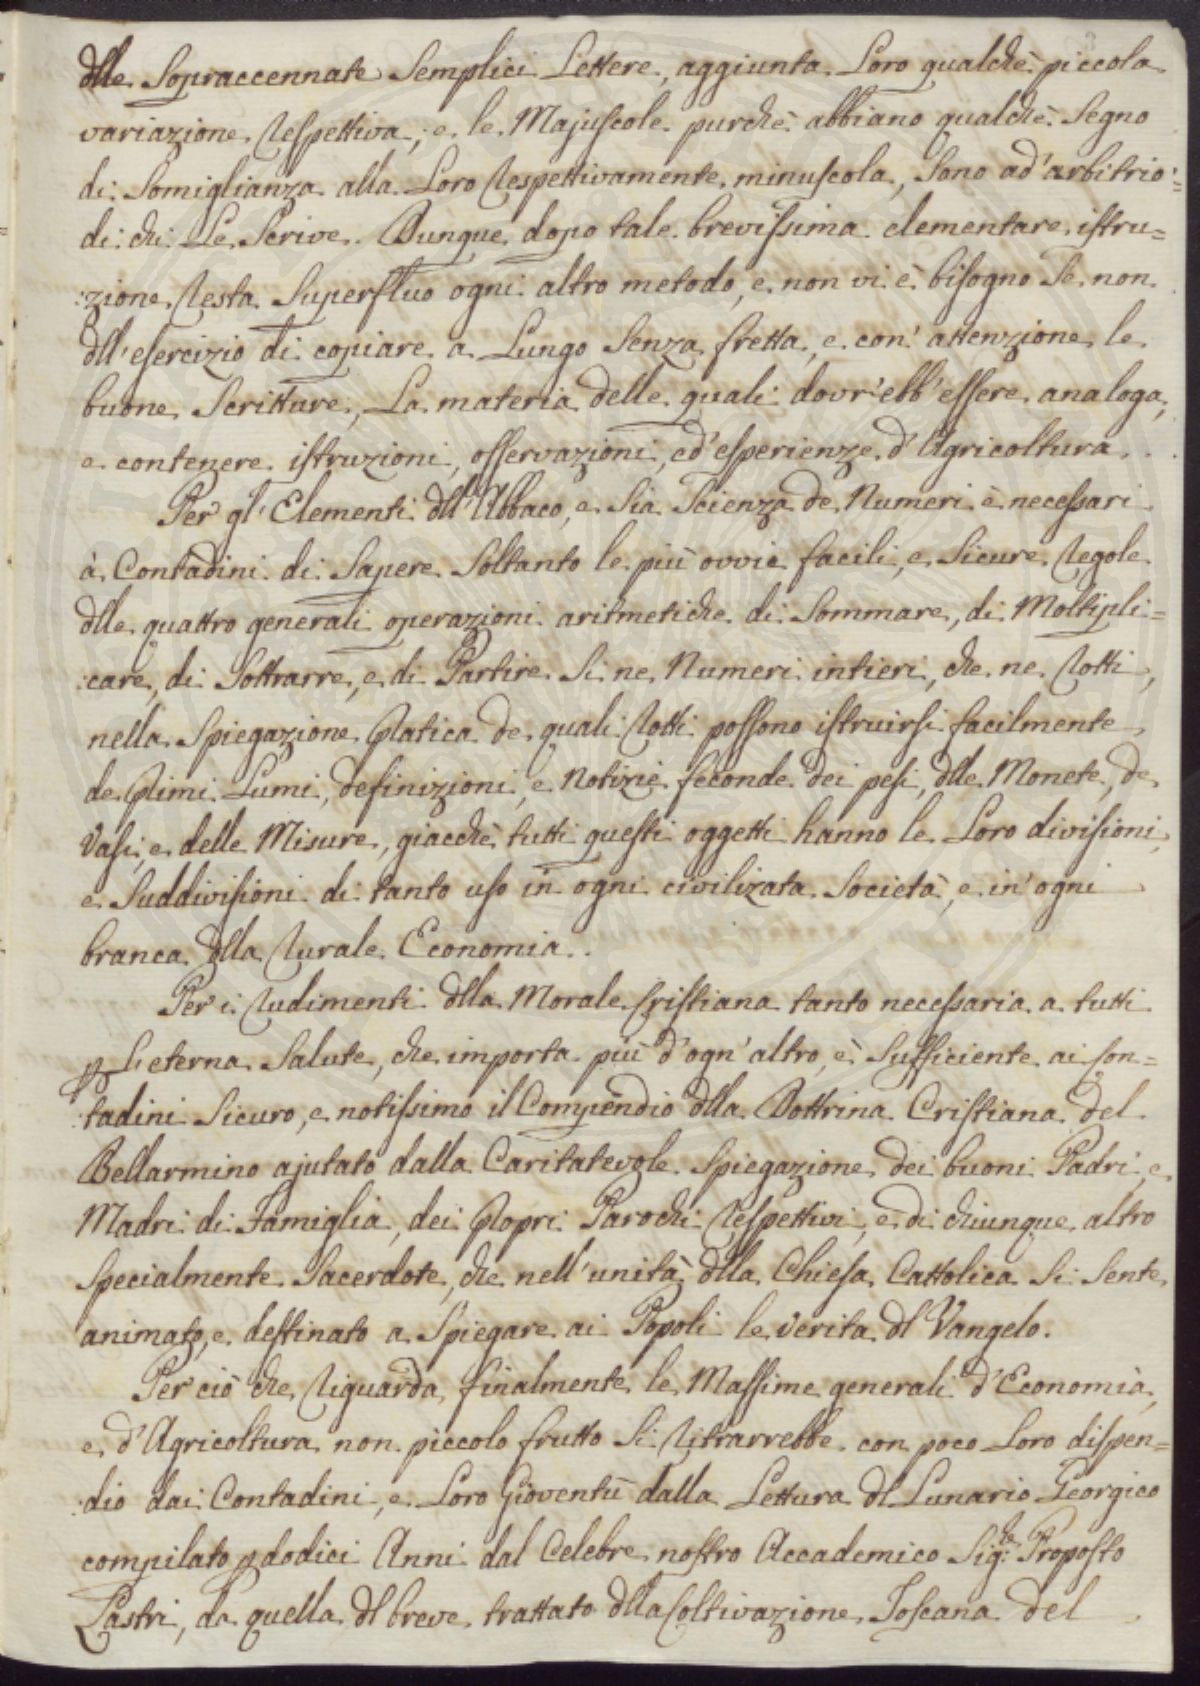 dlle Sopraccennate Semplici Lettere, aggiunta Loro qualchè piccola
variazione Respettiva, e le Majuscole purchè abbiano qualchè Segno
di Somiglianza alla Loro Respettivamente minuscola, Sono ad'arbitrio
di chi Le Scrive. Dunque dopo tale brevissima elementare istru=
:zione Resta Superfluo ogni altro metodo, e non vi è bisogno Se non
dll'esercizio di copiare a Lungo Senza fretta, e con' attenzione le
buone Scritture, La materia delle quali dovr'ebb'essere analoga,
e contenere istruzioni, osservazioni, ed'esperienze d'Agricoltura.
Per gl'Elementi dll'Abbaco, e Sia Scienza de Numeri è necessari
à Contadini di Sapere Soltanto le più ovvie facili, e Sicure Regole
dlle quattro generali operazioni aritmetiche di Sommare, di Moltipli=
:care, di Sottrarre, e di Partire Si ne Numeri intieri, che ne Rotti,
nella Spiegazione Pratica de quali Rotti possono istruirsi facilmente
de Primi Lumi, definizioni, e Notizie feconde dei pesi, dlle Monete, de
Vasi, e delle Misure, giacchè tutti questi oggetti hanno le Loro divisioni,
e Suddivisioni di tanto uso in ogni civilizata Società, e in' ogni
branca dlla Rurale Economia..
Per i Rudimenti dlla Morale Cristiana tanto necessaria a tutti
p L'eterna Salute, che importa più d'ogn'altro, è Sufficiente ai Con=
:tadini Sicuro, e notissimo il Compendio dlla Dottrina Cristiana del
Bellarmino ajutato dalla Caritatevole Spiegazione dei buoni Padri e
Madri di Famiglia, dei Propri Parochi Respettivi, e di chiunque altro
Specialmente Sacerdote, che nell'unità dlla Chiesa Cattolica Si Sente
animato, e destinato a Spiegare ai Popoli le verità dl Vangelo.
Per ciò che Riguarda finalmente le Massime generali d'Economia,
e d'Agricoltura non piccolo frutto Si Ritrarrebbe con poco Loro dispen=
:dio dai Contadini, e Loro Gioventù dalla Lettura dl Lunario Georgico
compilato p dodici Anni dal Celebre nostro Accademico Sig:re Proposto
Lastri, da quella dl breve trattato dlla Coltivazione Toscana del